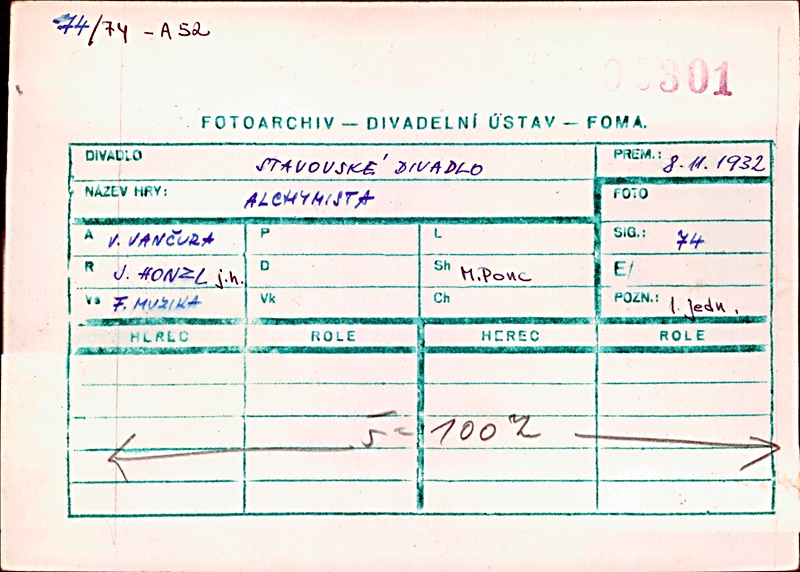 74/74 - A 52
00301
FOTOARCHIV — DIVADELNÍ ÚSTAV — FOMA.
DIVADLO STAVOVSKÉ DIVADLO PREM.: 8.11.1932
NÁZEV HRY: ALCHYMISTA FOTO
A V. VANČURA P L SIG.: 74
R J. HONZL j.h. D Sh M. Ponc E/
Vs F. MUZIKA Vk Ch POZN.: 1. jedn.
HEREC ROLE HEREC ROLE
š = 100%